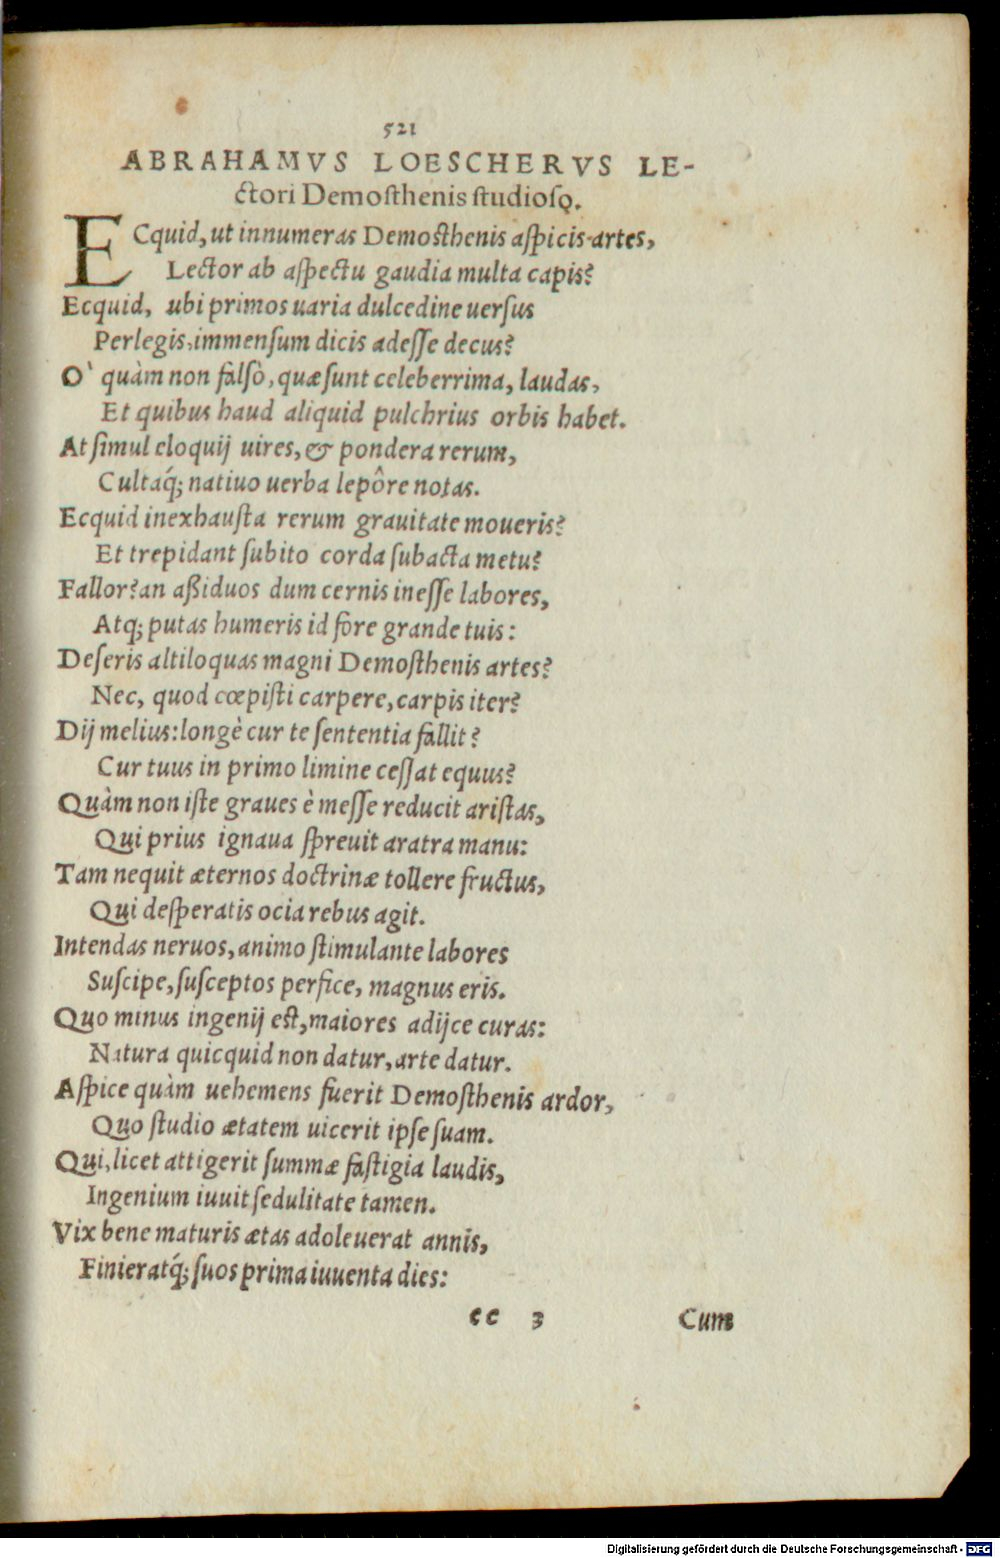 521
ABRAHAMVS LOESCHERVS LE-
ctori Demosthenis studioso.
ECquid, ut innumeras Demosthenis aspicis artes,
Lector ab aspectu gaudia multa capis?
Ecquid, ubi primos uaria dulcedine uersus
Perlegis, immensum dicis adesse decus?
O` quàm non falsò, quæ sunt celeberrima, laudas,
Et quibus haud aliquid pulchrius orbis habet.
At simul eloquij uires, & pondera rerum,
Cultaq́; natiuo uerba lepôre notas.
Ecquid inexhausta rerum grauitate moueris?
Et trepidant subito corda subacta metu?
Fallor? an aßiduos dum cernis inesse labores,
Atq; putas humeris id fore grande tuis:
Deseris altiloquas magni Demosthenis artes?
Nec, quod cœpisti carpere, carpis iter?
Dij melius: longè cur te sententia fallit?
Cur tuus in primo limine cessat equus?
Quàm non iste graues è messe reducit aristas,
Qui prius ignaua spreuit aratra manu:
Tam nequit æternos doctrinæ tollere fructus,
Qui desperatis ocia rebus agit.
Intendas neruos, animo stimulante labores
Suscipe, susceptos perfice, magnus eris.
Quo minus ingenij est, maiores adijce curas:
Natura quicquid non datur, arte datur.
Aspice quàm uehemens fuerit Demosthenis ardor,
Quo studio ætatem uicerit ipse suam.
Qui, licet attigerit summæ fastigia laudis,
Ingenium iuuit sedulitate tamen.
Vix bene maturis ætas adoleuerat annis,
Finieratq́; suos prima iuuenta dies:
cc 3 Cum
Digitalisierung gefördert durch die Deutsche Forschungsgemeinschaft - DFG